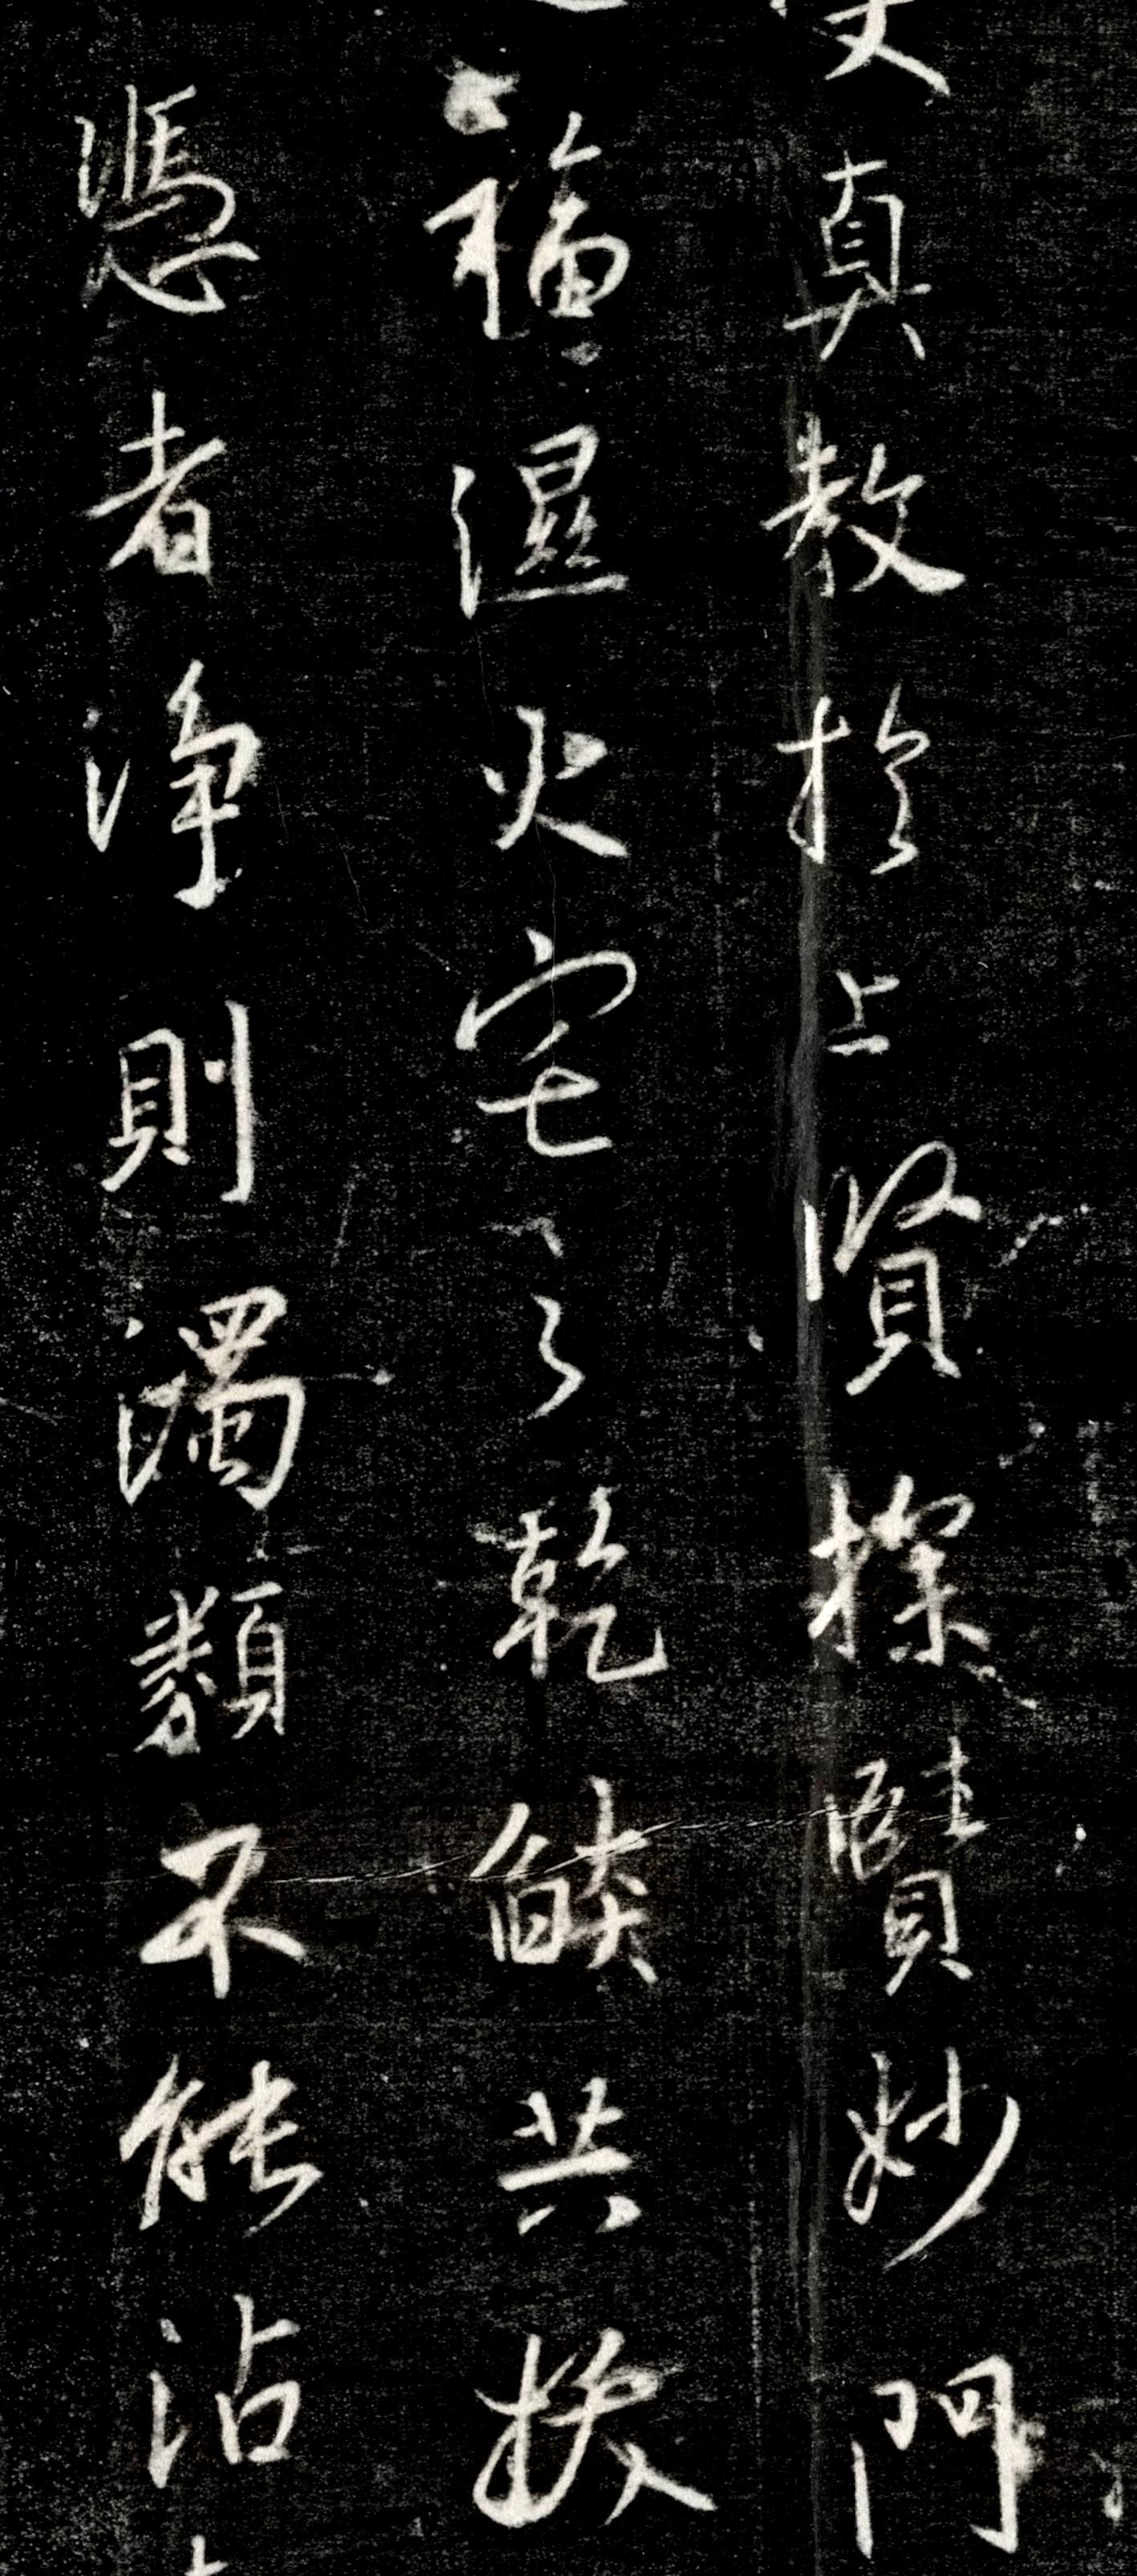 真教於上賢探賾妙門
福濕火宅之乾燄共拔
憑者淨則濁類不能沾